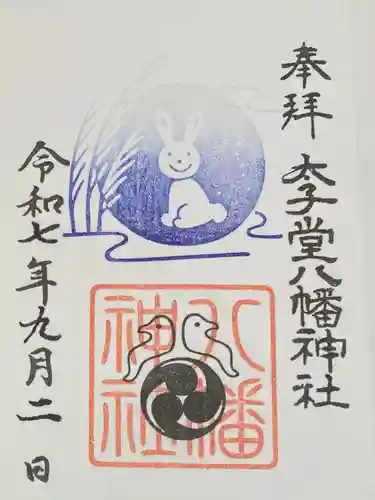 奉拝
太子堂八幡神社
八幡
神社
令和七年九月二日